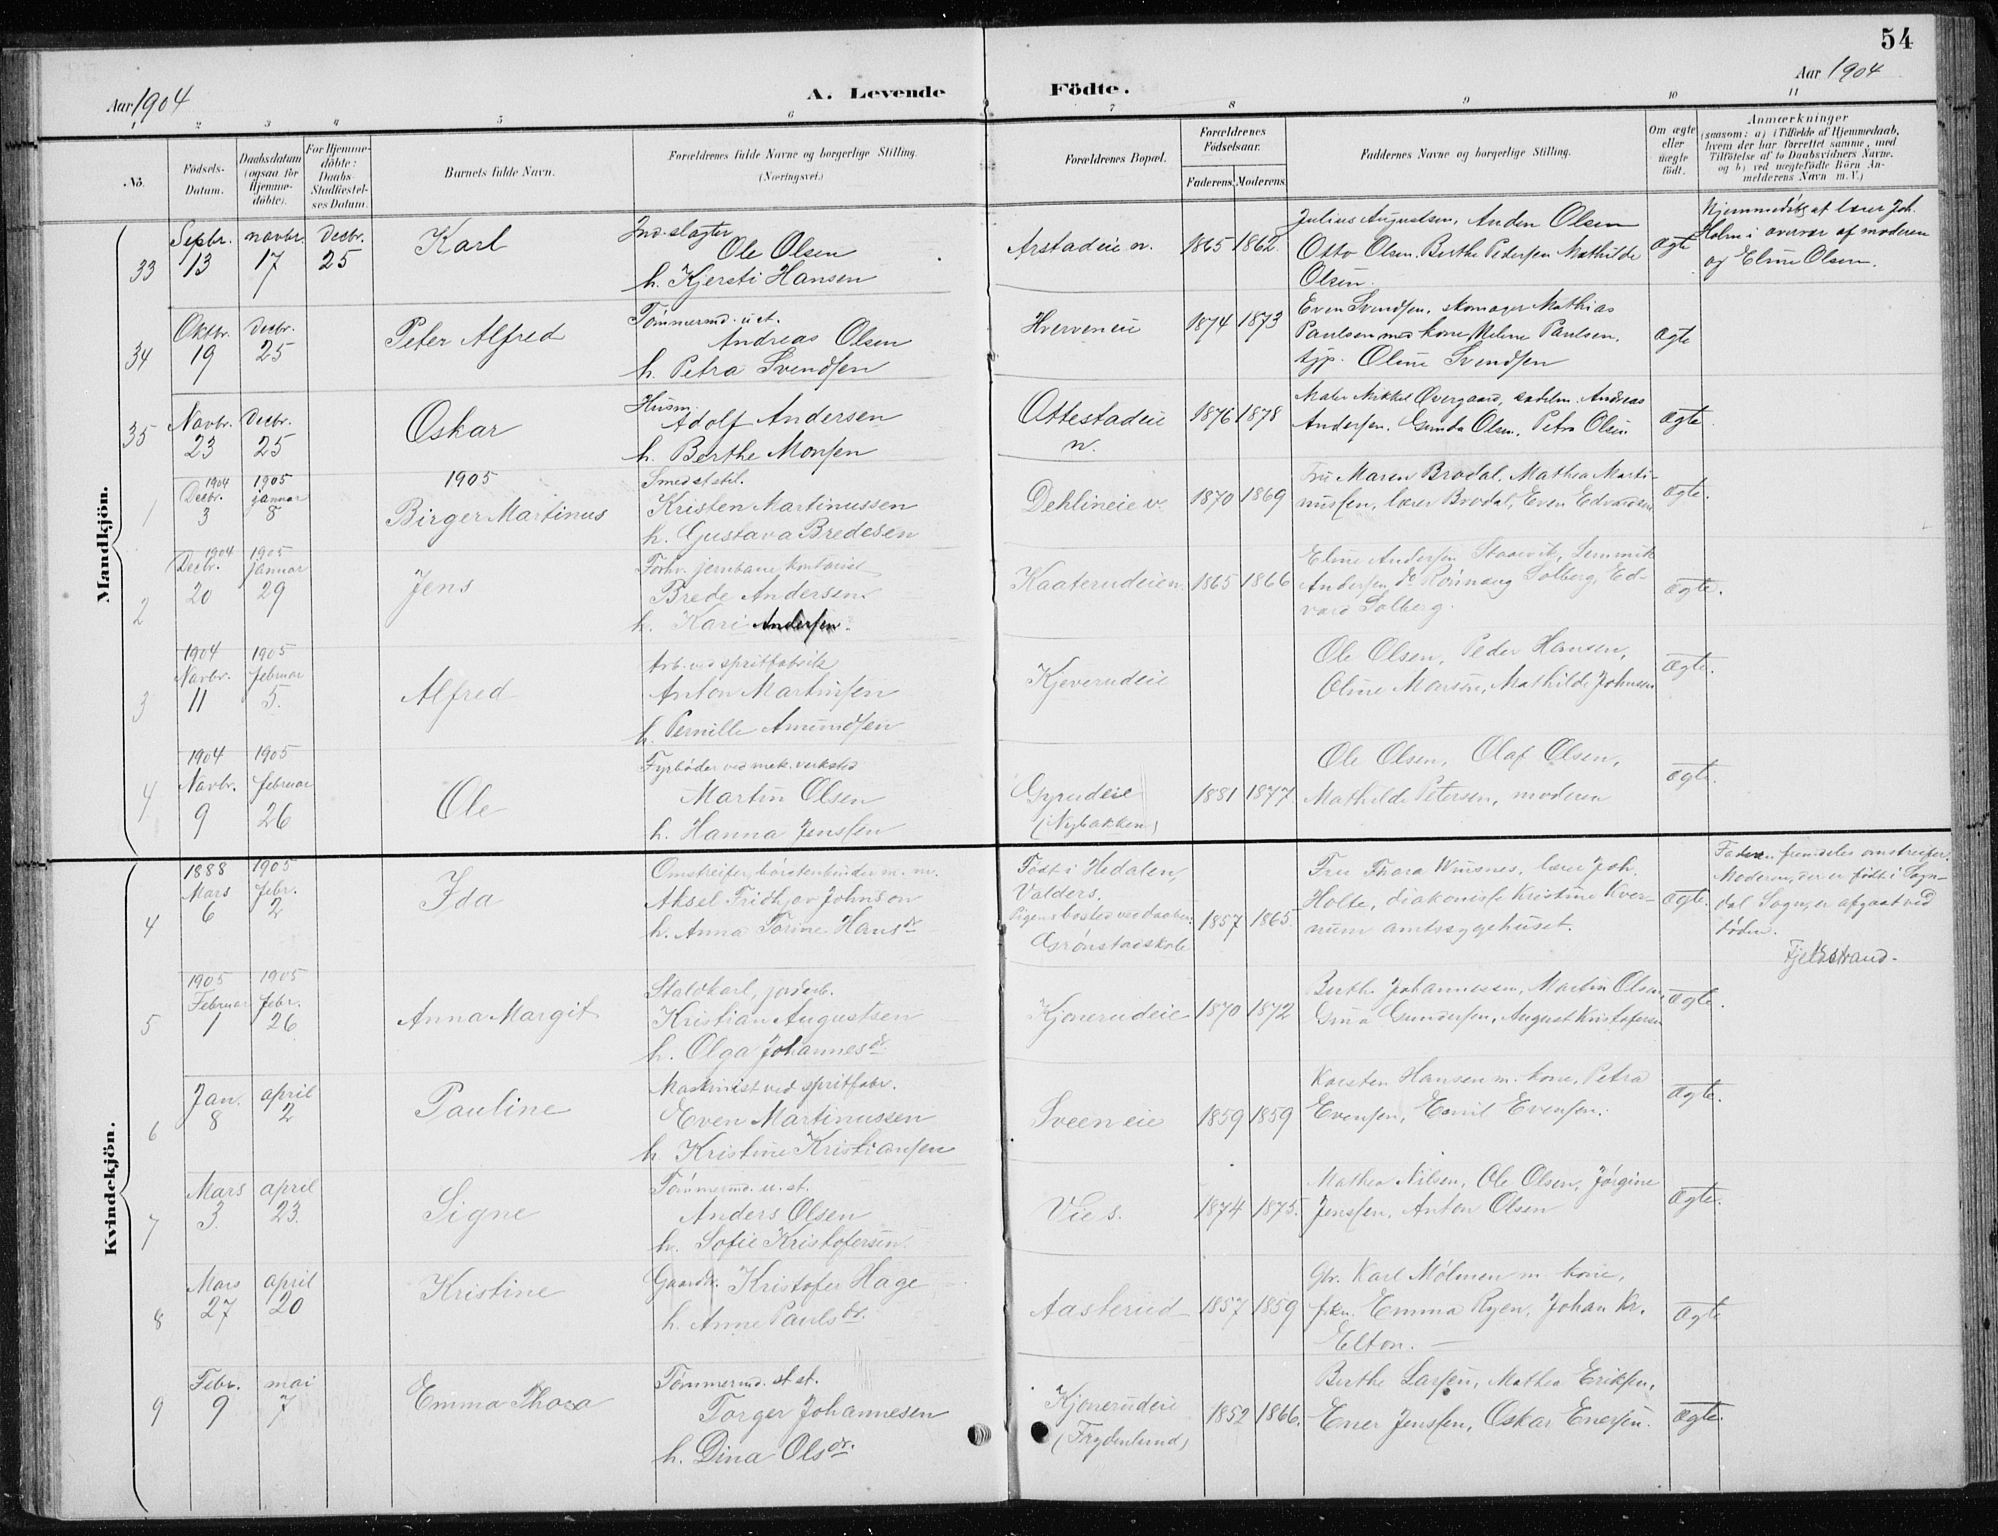 54
Aar 1904
A. Levende Födte.
Aar 1904
1 2 3 4 5 6 7 8 9 10 11
No.
Födsels-Datum.
Daabsdatum (ogsaa for Hjemme-döbte).
For Hjemme-döbte: Daabs-Stadfæstel-ses Datum.
Barnets fulde Navn.
Forældrenes fulde Navne og borgerlige Stilling.
(Næringsvei.)
Forældrenes Bopæl.
Forældrenes Födselsaar.
Faderens. Moderens.
Faddernes Navne og borgerlige Stilling.
Om ægte eller uægte födt.
Anmærkninger
(saasom: a) i Tilfælde af Hjemmedaab, hvem der har forrettet samme, med Tilföielse af to Daabsvidners Navne, og b) ved uægtefödte Börn An-melderens Navn m. V.)
Mandkjön.
33 Sepbr. 13 novbr. 17 Decbr. 25 Karl
Ind. slagter
Ole Olsen
h. Kjersti Hansen
Arstadeie n. 1865 1862
Julius Augustsen, Anden Olsen
Otto Olsen, Berthe Pedersen Mathilde
Olsen.
Ægte
Hjemmedøbt af lærer Joh.
Holm i overvær af moderen
og Eline Olsen.
34 Oktbr. 19 Decbr. 25 Peter Alfred
Tømmermd. u. st.
Andreas Olsen
h. Petra Svendsen
Hverveneie 1874 1873
Even Svendsen, skomager Mathias
Paulsen med kone, Helene Paulsen,
typ. Oline Svendsen
Ægte
35 Novbr. 23 Decbr. 25 Oskar
Husm.
Adolf Andersen
h. Berthe Monsen
Ottestadeie n. 1876 1878
Maler Mikkel Øvergaard, Andreas
Andersen, Gunda Olsen, Petra Olsen
Ægte.
1905
1 1904 Decbr. 3 1905 januar 8 Birger Martinus
Smed st. st.
Kristen Martinussen
h. Gustava Bredesen
Dehlineie v. 1870 1869
Fru Maren Brodal, Mathea Marti-
nussen, lærer Brodal, Even Edvardsen
Ægte.
2 1904 Decbr. 20 1905 januar 29 Jens
Forhv. jernbane kontorist
Brede Andersen.
h. Kari Andersen.
Kaaterudeie n. 1865 1866
Eline Andersen Staavik,
Andersen, do Rønnaug Solberg, Ed-
vard Solberg.
Ægte.
3 1904 Novbr. 11 1905 februar 5. Alfred
Arb. ved spritfabrik
Anton Martinsen
h. Pernille Amundsen
Kjeverudeie
Ole Olsen, Peder Hansen,
Oline Monsen, Mathilde Johnsen
Ægte.
4 1904 Novbr. 9 1905 februar 26 Ole
Fyrbøder ved mek. verksted
Martin Olsen
h. Hanna Jenssen
Gyrudeie (Nybakken) 1881 1877
Ole Olsen, Olaf Olsen,
Mathilde Petersen, moderen
Ægte.
Kvindekjön.
4 1888 Mars 6 1905 febr. 2 Ida
Omstreifer, børstenbinder m. m.
Aksel Fridhjov Johnson
h. Anna Torine Hansdr
Født i Hedalen,
Valders.
Pigens bosted ved daaben:
Grønstadskole
1857 1865
Fru Thora Wiisnes, lærer Joh.
Holte, diakonisse Kristine Kver-
num amtssygehuset.
Ægte.
Faderen fremdeles omstreifer.
Moderen, der er født i Sogn-
dal Sogn, er afgaat ved
døden.
Fjeldstrand.
5 1905 Februar 1 1905 febr. 26 Anna Margit
Staldkarl, jordarb.
Kristian Augustsen
h. Olga Johannesdr.
Kjonerudeie 1870 1872
Berthe Johannessen, Martin Olsen,
Gina Gundersen, August Kristofersen
Ægte.
6 Jan. 8 april 2 Pauline
Maskinist ved spritfabr.
Even Martinussen
h. Kristine Kristiansen
Sveen eie 1859 1859
Karsten Hansen m. kone, Petra
Evensen, Emil Evensen.
Ægte.
7 Mars 3. april 23. Signe
Tømmermd. u. st.
Anders Olsen
h. Sofie Kristofersen.
Vie s. 1874 1875.
Mathea Nilsen, Ole Olsen, Jørgine
Jenssen, Anton Olsen
Ægte.
8 Mars 27 april 20 Kristine
Gaardbr. Kristofer Hage
h. Anne Paulsdr.
Aasterud 1857 1859
Gbr. Karl Mølmen m. kone,
frkn. Emma Ryen, Johan Kr.
Elton. —
Ægte
9 Febr. 9 mai 7 Emma Thora
Tømmermd. st st.
Torger Johannesen
h. Dina Olsdr.
Kjonerudeie (Frydenlund) 1852 1866.
Berthe Larsen, Mathea Eriksen,
Ener Jenssen, Oskar Enersen.
Ægte.